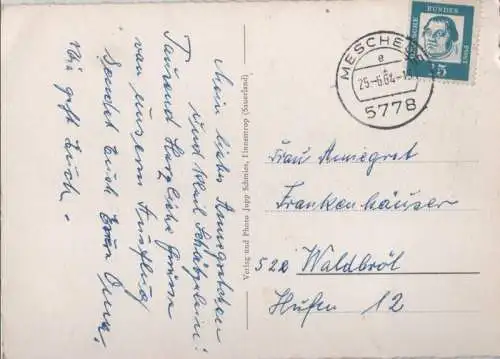 Mein liebes Annegretchen
und Klein Schätzelein!
Tausend Herzliche Grüsse
von unserm Ausflug
sendet Euch Eure Oma,
Wie geht Euch.
Verlag und Photo Jupp Schmies, Finnentrop (Sauerland)
MESCHEDE
e
25.-6.64-15
5778
DEUTSCHE BUNDESPOST
15
Frau Annegret
Frankenhäuser
522 Waldbröl
Hufen 12